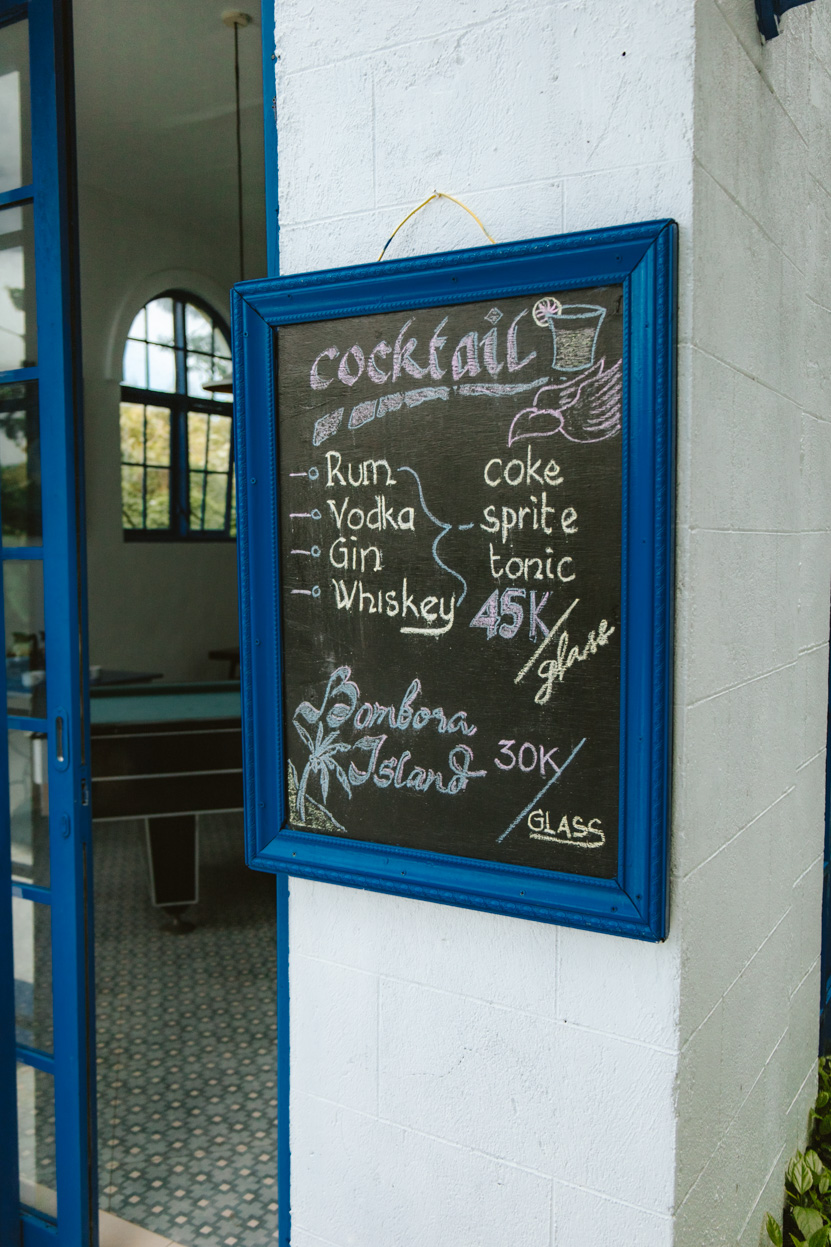 cocktail
Rum coke
Vodka sprite
Gin tonic
Whiskey 45K/glass
Bombora
Island 30K/
GLASS